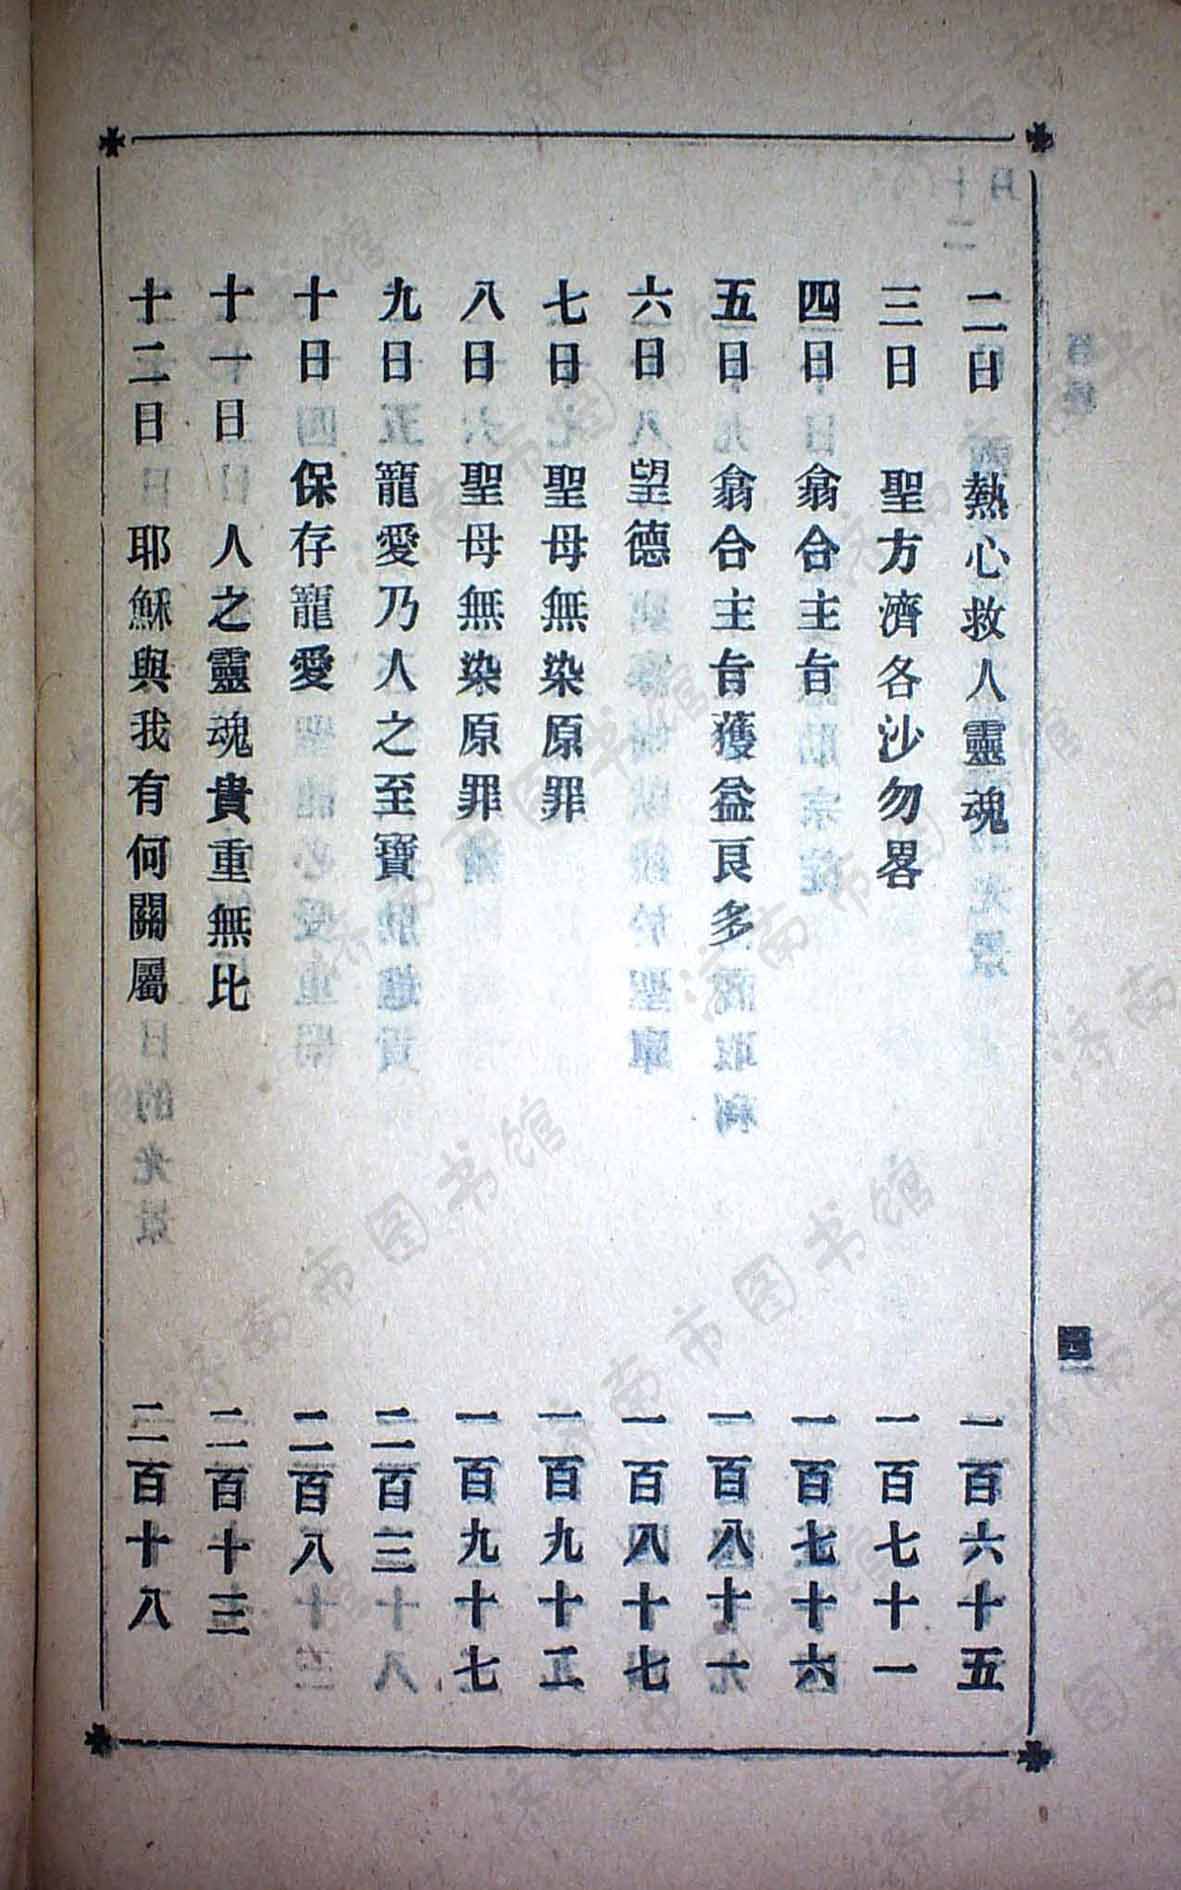 二日 熱心救人靈魂 一百六十五
三日 聖方濟各沙勿畧 一百七十一
四日 翕合主旨 一百七十六
五日 翕合主旨獲益良多 一百八十一
六日 望德 一百八十七
七日 聖母無染原罪 一百九十二
八日 聖母無染原罪 一百九十七
九日 寵愛乃人之至寶 二百三
十日 保存寵愛 二百八
十一日 人之靈魂貴重無比 二百十三
十二日 耶穌與我有何關屬 二百十八
济南市图书馆